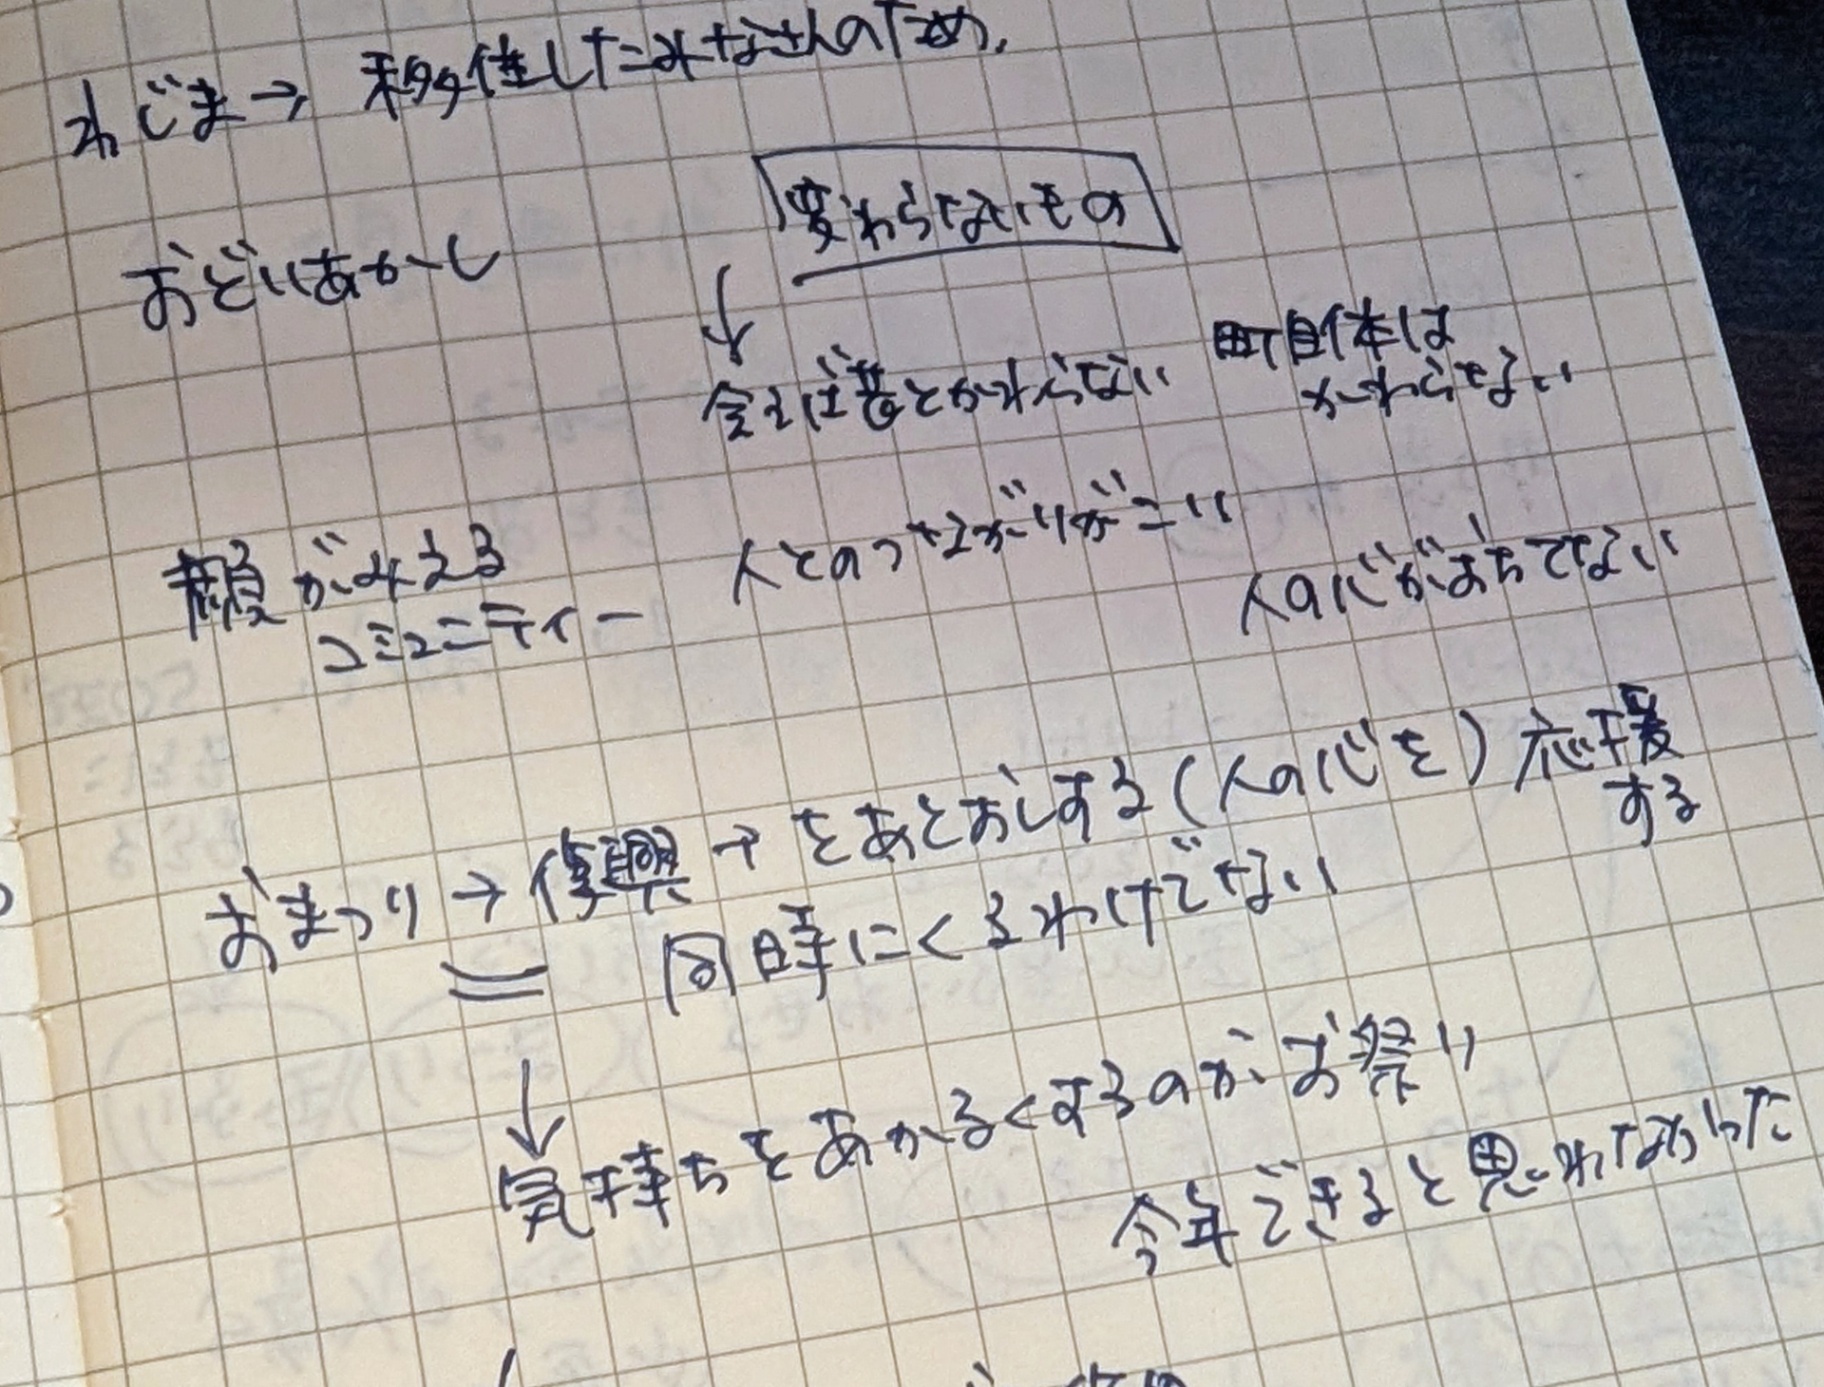 わじま→ 移住したみなさんのため、
変わらないもの
おどりあかし
↓
会えば昔とかわらない
町自体は
かわらない
顔がみえる
コミュニティー
人とのつながりがこい
人の心がおちてない
おまつり→復興→をあとおしする(人の心を)応援
する
同時にくるわけでない
↓
気持ちをあかるくするのがお祭り
今年できると思わなかった